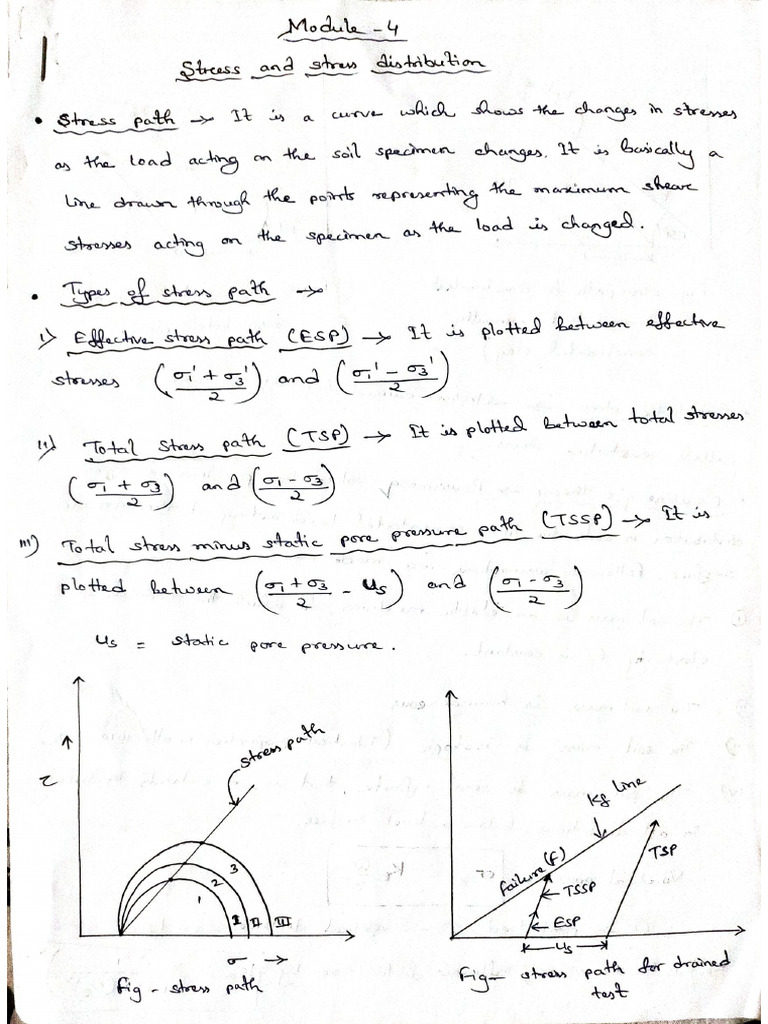 Module - 4
Stress and stress distribution
• Stress path → It is a curve which shows the changes in stresses
as the load acting on the soil specimen changes. It is basically a
line drawn through the points representing the maximum shear
stresses acting on the specimen as the load is changed.
• Types of stress path →
i) Effective stress path (ESP) → It is plotted between effective
stresses ((σ₁' + σ₃')/2) and ((σ₁' - σ₃')/2)
ii) Total stress path (TSP) → It is plotted between total stresses
((σ₁ + σ₃)/2) and ((σ₁ - σ₃)/2)
iii) Total stress minus static pore pressure path (TSSP) → It is
plotted between ((σ₁ + σ₃)/2 - us) and ((σ₁ - σ₃)/2)
us = static pore pressure.
τ
stress path
1
2
3
I
II
III
σ →
fig - stress path
Kf line
failure (f)
TSP
← TSSP
← ESP
us
fig - stress path for drained
test